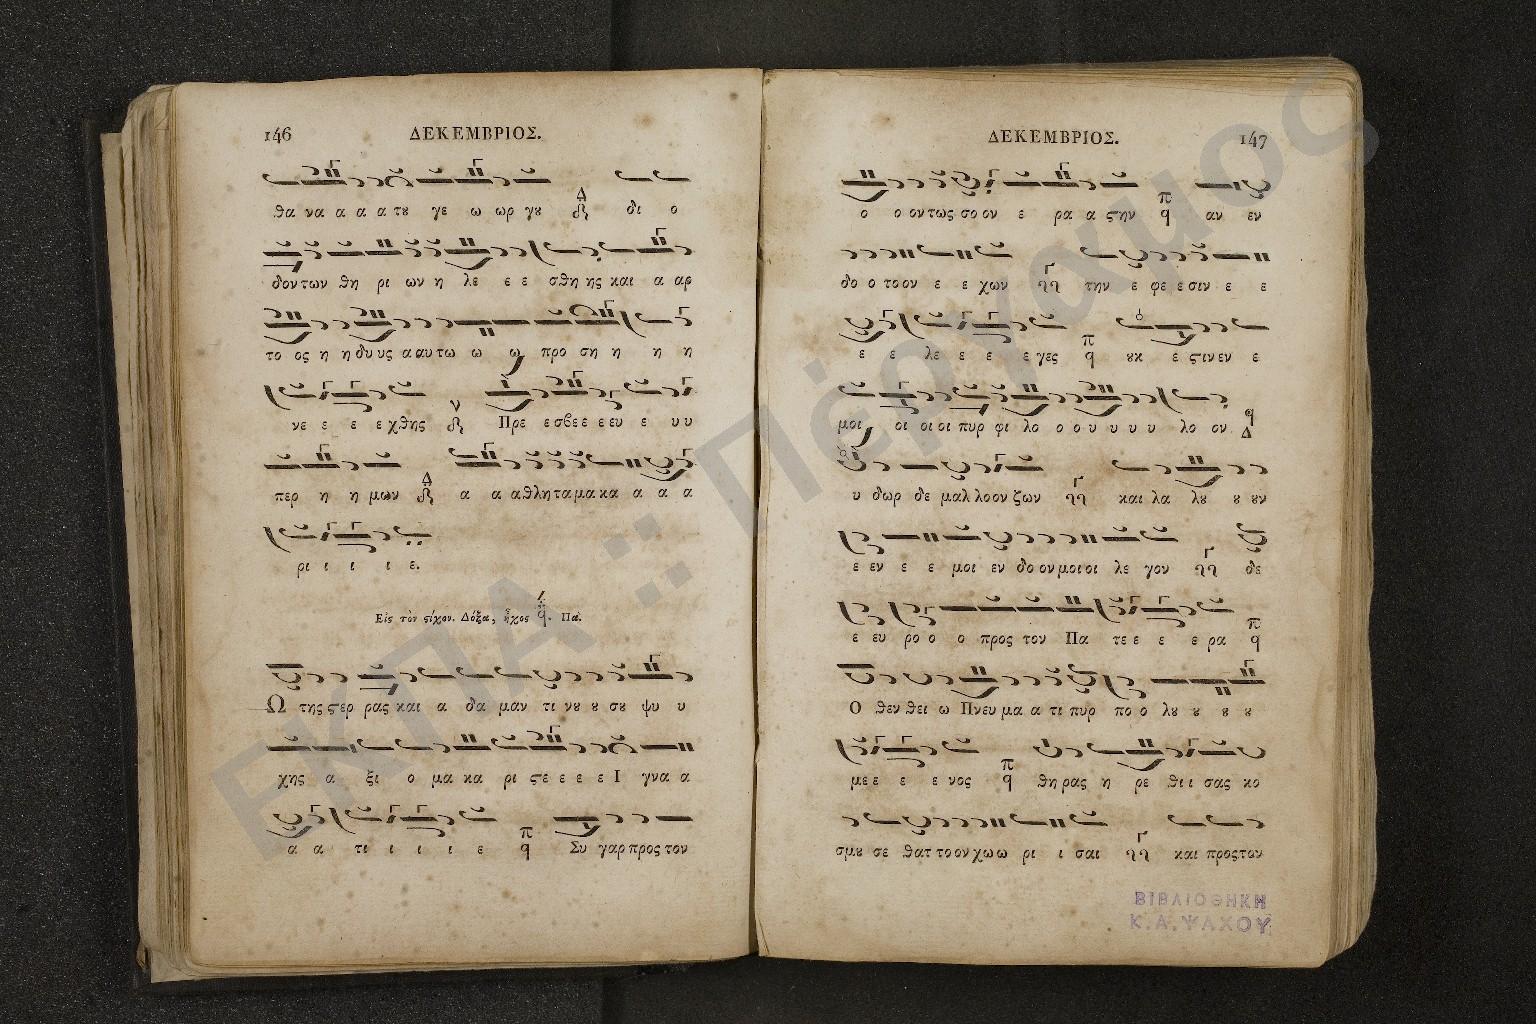 146 ΔΕΚΕΜΒΡΙΟΣ.
θα να α α α του γε ω ωρ γου δι ο
δον των θη ρι ων η λε ε ε σθη ης και α αρ
το ος η η δυ υς α αυ τω ω ω προ ση η η η
νε ε ε ε χθης Πρε ε σβε ε ε ευ ε υ υ
περ η η μων α α α θλη τα μα κα α α α
ρι ι ι ι ι ε.
Εἰς τὸν ϛίχον. Δόξα, ἦχος Πα.
Ω της ϛερ ρας και α δα μαν τι νου ου σου ψυ υ
χης α ξι ο μα κα ρι ϛε ε ε ε Ι γνα α
α α τι ι ι ι ε Συ γαρ προς τον
ΔΕΚΕΜΒΡΙΟΣ. 147
ο ο ον τως σο ον ε ρα α ϛην αν εν
δο ο το ον ε ε χων την ε φε ε σιν ε ε
ε ε λε ε ε ε γες ουκ ε ϛιν εν ε
μοι οι οι οι πυρ φι λο ο ο υ υ υ υ λο ον
υ δωρ δε μαλ λο ον ζων και λα λου ου ουν
ε εν ε ε μοι εν δο ον μοι οι λε γον δε
ε ευ ρο ο ο προς τον Πα τε ε ε ε ρα
Ο θεν θει ω Πνευ μα α τι πυρ πο ο λου ου ου ου
με ε ε ε νος θη ρας η ρε θι ι σας κο
σμου σε θατ το ον χω ω ρι ι σαι και προς τον
ΒΙΒΛΙΟΘΗΚΗ
Κ.Α.ΨΑΧΟΥ
ΕΚΠΑ :: Πέργαμος